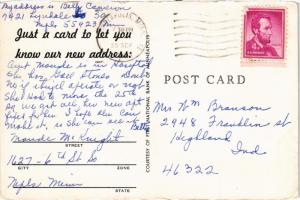 My address is Betty Cameron
7421 Lyndale So
Mpls 55423 Mn
Just a card to let you
know our new address:
Aunt Maude is in Hospital
She has Gall Stones Don't
No if they'll operate or not
She had to move the 25th
so we got all her new apt
fixed up for when I left the Car
make it, so she can use it
Betty
Maude McKnight
STREET
1627-6th St So
CITY ZONE
Mpls Minn
STATE
COURTESY OF FIRST NATIONAL BANK OF MINNEAPOLIS
POST CARD
4¢
Mrs Wm Branson
2948 Franklin St
Highland
Ind
46322